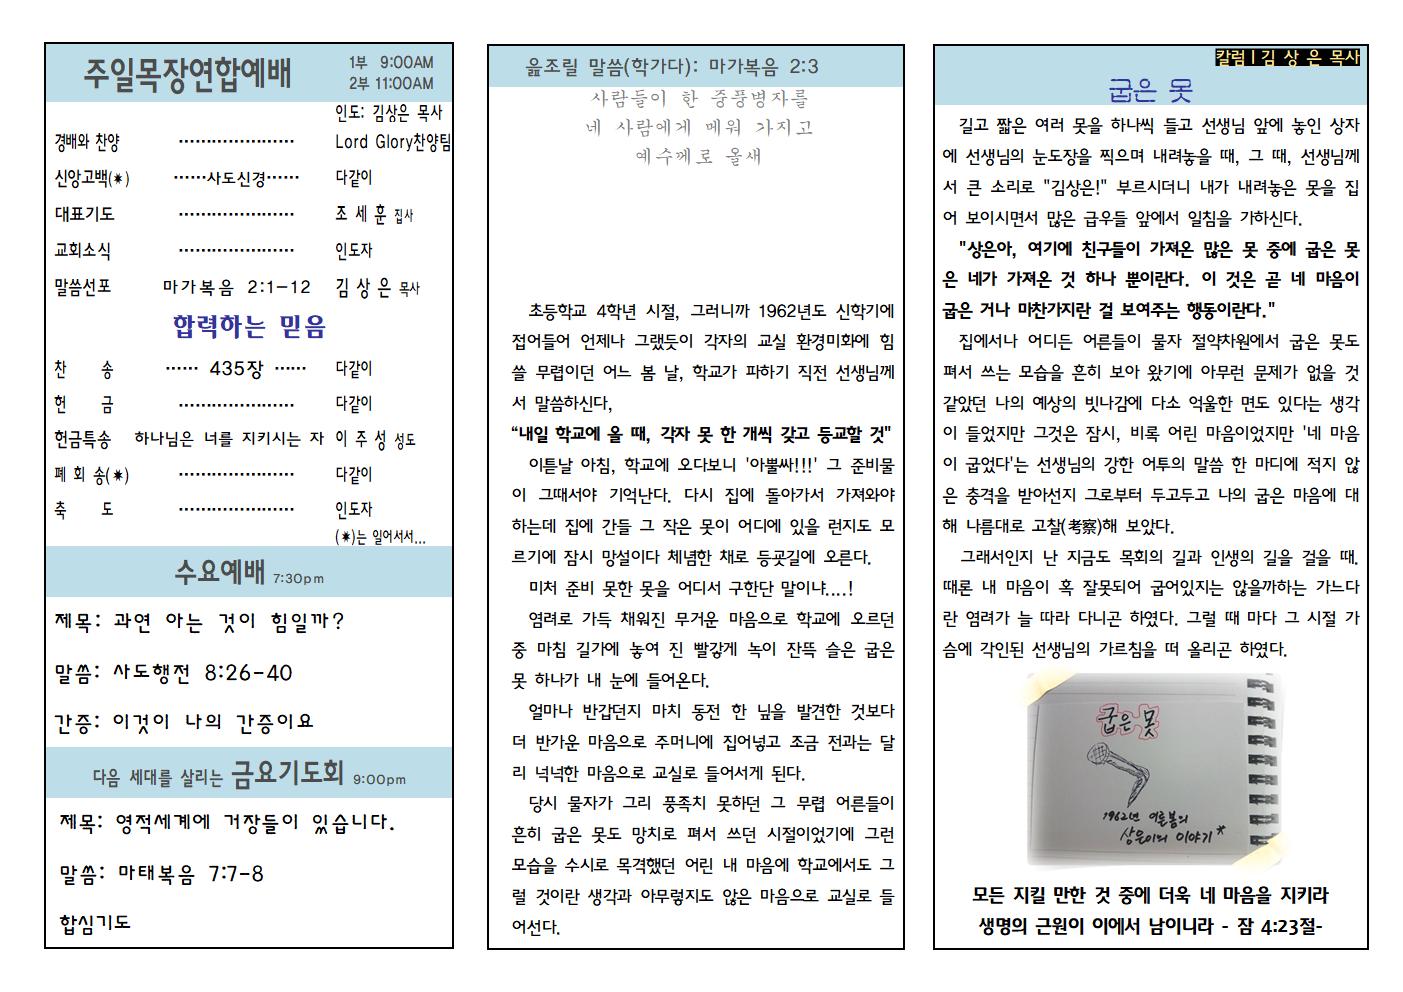 주일목장연합예배
1부 9:00AM
2부 11:00AM
인도: 김상은 목사
경배와 찬양 ····················· Lord Glory찬양팀
신앙고백(✷) ······사도신경······ 다같이
대표기도 ····················· 조 세 훈 집사
교회소식 ····················· 인도자
말씀선포 마가복음 2:1-12 김 상 은 목사
합력하는 믿음
찬 송 ······ 435장 ······ 다같이
헌 금 ····················· 다같이
헌금특송 하나님은 너를 지키시는 자 이 주 성 성도
폐 회 송(✷) ····················· 다같이
축 도 ····················· 인도자
(✷)는 일어서서...
수요예배 7:30pm
제목: 과연 아는 것이 힘일까?
말씀: 사도행전 8:26-40
간증: 이것이 나의 간증이요
다음 세대를 살리는 금요기도회 9:00pm
제목: 영적세계에 거장들이 있습니다.
말씀: 마태복음 7:7-8
합심기도
읊조릴 말씀(하가다): 마가복음 2:3
사람들이 한 중풍병자를
네 사람에게 메워 가지고
예수께로 올새
초등학교 4학년 시절, 그러니까 1962년도 신학기에
접어들어 언제나 그랬듯이 각자의 교실 환경미화에 힘
쓸 무렵이던 어느 봄 날, 학교가 파하기 직전 선생님께
서 말씀하신다,
“내일 학교에 올 때, 각자 못 한 개씩 갖고 등교할 것"
이튿날 아침, 학교에 오다보니 '아뿔싸!!!' 그 준비물
이 그때서야 기억난다. 다시 집에 돌아가서 가져와야
하는데 집에 간들 그 작은 못이 어디에 있을 런지도 모
르기에 잠시 망설이다 체념한 채로 등굣길에 오른다.
미처 준비 못한 못을 어디서 구한단 말이냐....!
염려로 가득 채워진 무거운 마음으로 학교에 오르던
중 마침 길가에 놓여 진 빨갛게 녹이 잔뜩 슬은 굽은
못 하나가 내 눈에 들어온다.
얼마나 반갑던지 마치 동전 한 닢을 발견한 것보다
더 반가운 마음으로 주머니에 집어넣고 조금 전과는 달
리 넉넉한 마음으로 교실로 들어서게 된다.
당시 물자가 그리 풍족치 못하던 그 무렵 어른들이
흔히 굽은 못도 망치로 펴서 쓰던 시절이었기에 그런
모습을 수시로 목격했던 어린 내 마음에 학교에서도 그
럴 것이란 생각과 아무렇지도 않은 마음으로 교실로 들
어선다.
칼럼 | 김 상 은 목사
굽은 못
길고 짧은 여러 못을 하나씩 들고 선생님 앞에 놓인 상자
에 선생님의 눈도장을 찍으며 내려놓을 때, 그 때, 선생님께
서 큰 소리로 "김상은!" 부르시더니 내가 내려놓은 못을 집
어 보이시면서 많은 급우들 앞에서 일침을 가하신다.
"상은아, 여기에 친구들이 가져온 많은 못 중에 굽은 못
은 네가 가져온 것 하나 뿐이란다. 이 것은 곧 네 마음이
굽은 거나 마찬가지란 걸 보여주는 행동이란다."
집에서나 어디든 어른들이 물자 절약차원에서 굽은 못도
펴서 쓰는 모습을 흔히 보아 왔기에 아무런 문제가 없을 것
같았던 나의 예상의 빗나감에 다소 억울한 면도 있다는 생각
이 들었지만 그것은 잠시, 비록 어린 마음이었지만 '네 마음
이 굽었다'는 선생님의 강한 어투의 말씀 한 마디에 적지 않
은 충격을 받아선지 그로부터 두고두고 나의 굽은 마음에 대
해 나름대로 고찰(考察)해 보았다.
그래서인지 난 지금도 목회의 길과 인생의 길을 걸을 때.
때론 내 마음이 혹 잘못되어 굽어있지는 않을까하는 가느다
란 염려가 늘 따라 다니곤 하였다. 그럴 때 마다 그 시절 가
슴에 각인된 선생님의 가르침을 떠 올리곤 하였다.
굽은 못
1962년 여름봄의
상은이의 이야기*
모든 지킬 만한 것 중에 더욱 네 마음을 지키라
생명의 근원이 이에서 남이니라 - 잠 4:23절-